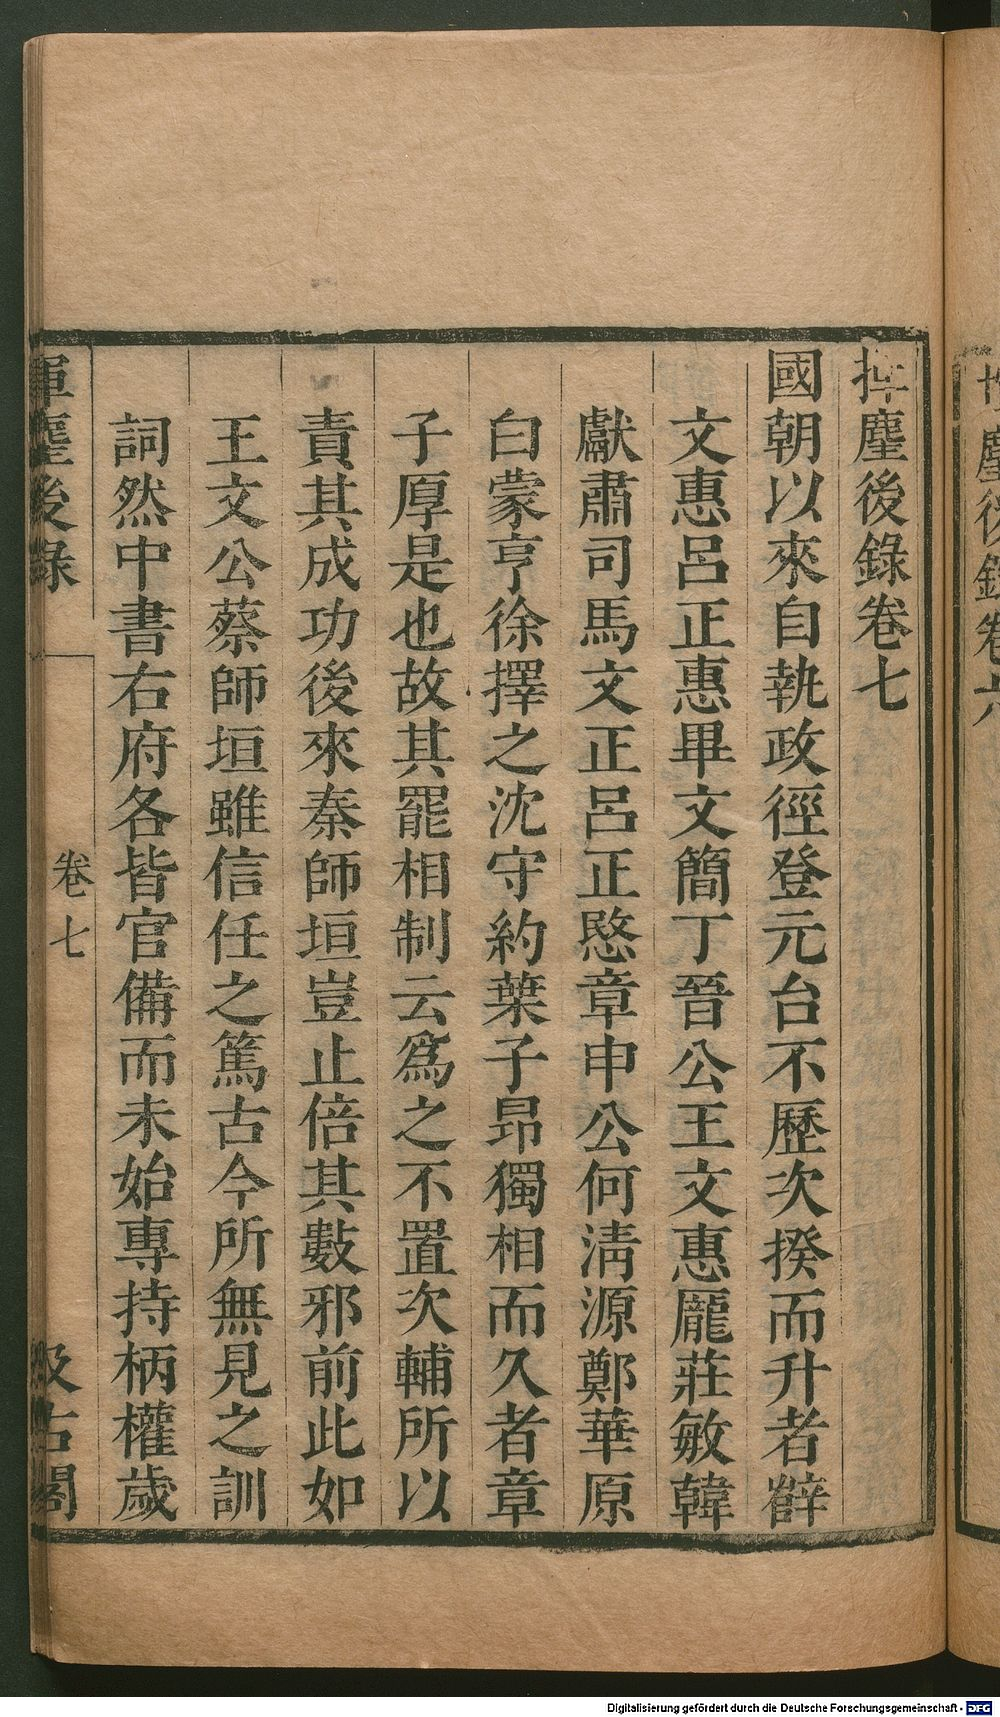 揮麈後錄卷七
國朝以來自執政徑登元台不歷次揆而升者薛
文惠呂正惠畢文簡丁晉公王文惠龐莊敏韓
獻肅司馬文正呂正愍章申公何清源鄭華原
白蒙亨徐擇之沈守約葉子昂獨相而久者章
子厚是也故其罷相制云爲之不置次輔所以
責其成功後來秦師垣豈止倍其數邪前此如
王文公蔡師垣雖信任之篤古今所無見之訓
詞然中書右府各皆官備而未始專持柄權歲
揮麈後錄
卷七
汲古閣
麈後錄卷六
Digitalisierung gefördert durch die Deutsche Forschungsgemeinschaft - DFG